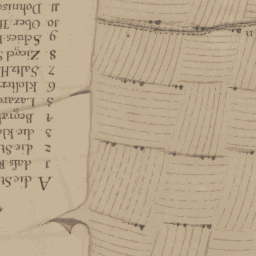 A die St
1 dass R
2 die St
3 die kle
4 Begrab
5 Lazare
6 Kloster
7 Saltz H
8 Ziegel
9 Schies-
10 Ober
11 Dohmisc